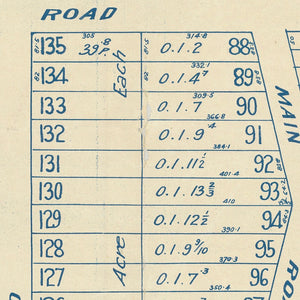 ROAD
305 314.8
81.5 135 39P.8 81.5 0.1.2 88
332.1
82 134 Each 82 0.1.4.7 89
309.5
133 0.1.7 90
366.8
132 0.1.9.4 91
384.1
131 0.1.11½ 92
401.4
130 0.1.13⅔ 93
410
129 0.1.12½ 94
390.1
128 Acre 0.1.9 9/10 95
370.3
127 0.1.7.3 96
350.4
MAIN
RO